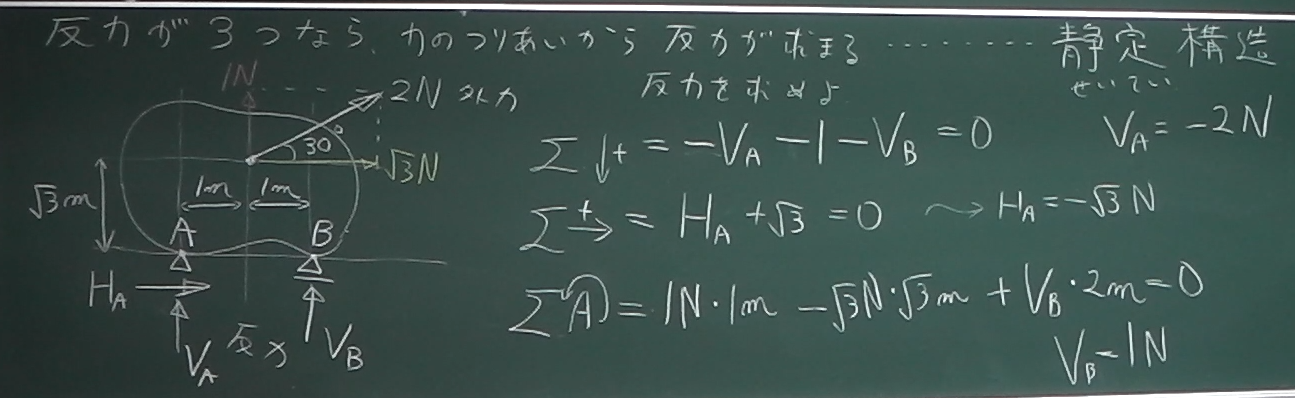 反力が3つなら、力のつりあいから 反力が求まる ········ 静定構造
せいてい
反力を求めよ
1N
2N 外力
30°
√3N
√3m
1m 1m
A B
H_A
V_A 反力 V_B
Σ↓+ = -V_A - 1 - V_B = 0
V_A = -2N
Σ+→ = H_A + √3 = 0 〜→ H_A = -√3 N
ΣA = 1N·1m - √3N·√3m + V_B·2m = 0
V_B = 1N